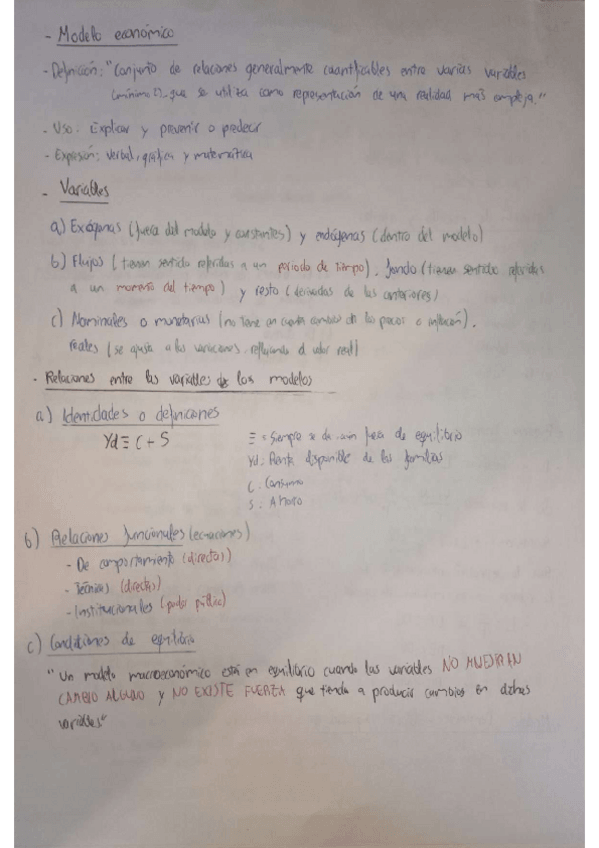 - Modelo económico
- Definición: "Conjunto de relaciones generalmente cuantificables entre varias variables
(mínimo 2) que se utiliza como representación de una realidad más compleja."
- Uso: Explicar y prevenir o predecir
- Expresión: verbal, gráfica y matemática
- Variables
a) Exógenas (fuera del modelo y constantes) y endógenas (dentro del modelo)
b) Flujos (tienen sentido referidas a un periodo de tiempo), fondo (tienen sentido referidas
a un momento del tiempo) y resto (derivadas de las anteriores)
c) Nominales o monetarias (no tiene en cuenta cambio de los precios o inflación),
reales (se ajusta a las variaciones, reflejando el valor real)
- Relaciones entre las variables de los modelos
a) Identidades o definiciones
Yd ≡ C + S
≡ = Siempre se da aun fuera de equilibrio
Yd: Renta disponible de las familias
C: Consumo
S: Ahorro
b) Relaciones funcionales (ecuaciones)
- De comportamiento (directas)
- Técnicas (directas)
- Institucionales (poder público)
c) Condiciones de equilibrio
"Un modelo macroeconómico está en equilibrio cuando las variables NO MUESTRAN
CAMBIO ALGUNO y NO EXISTE FUERZA que tienda a producir cambios en dichas
variables"